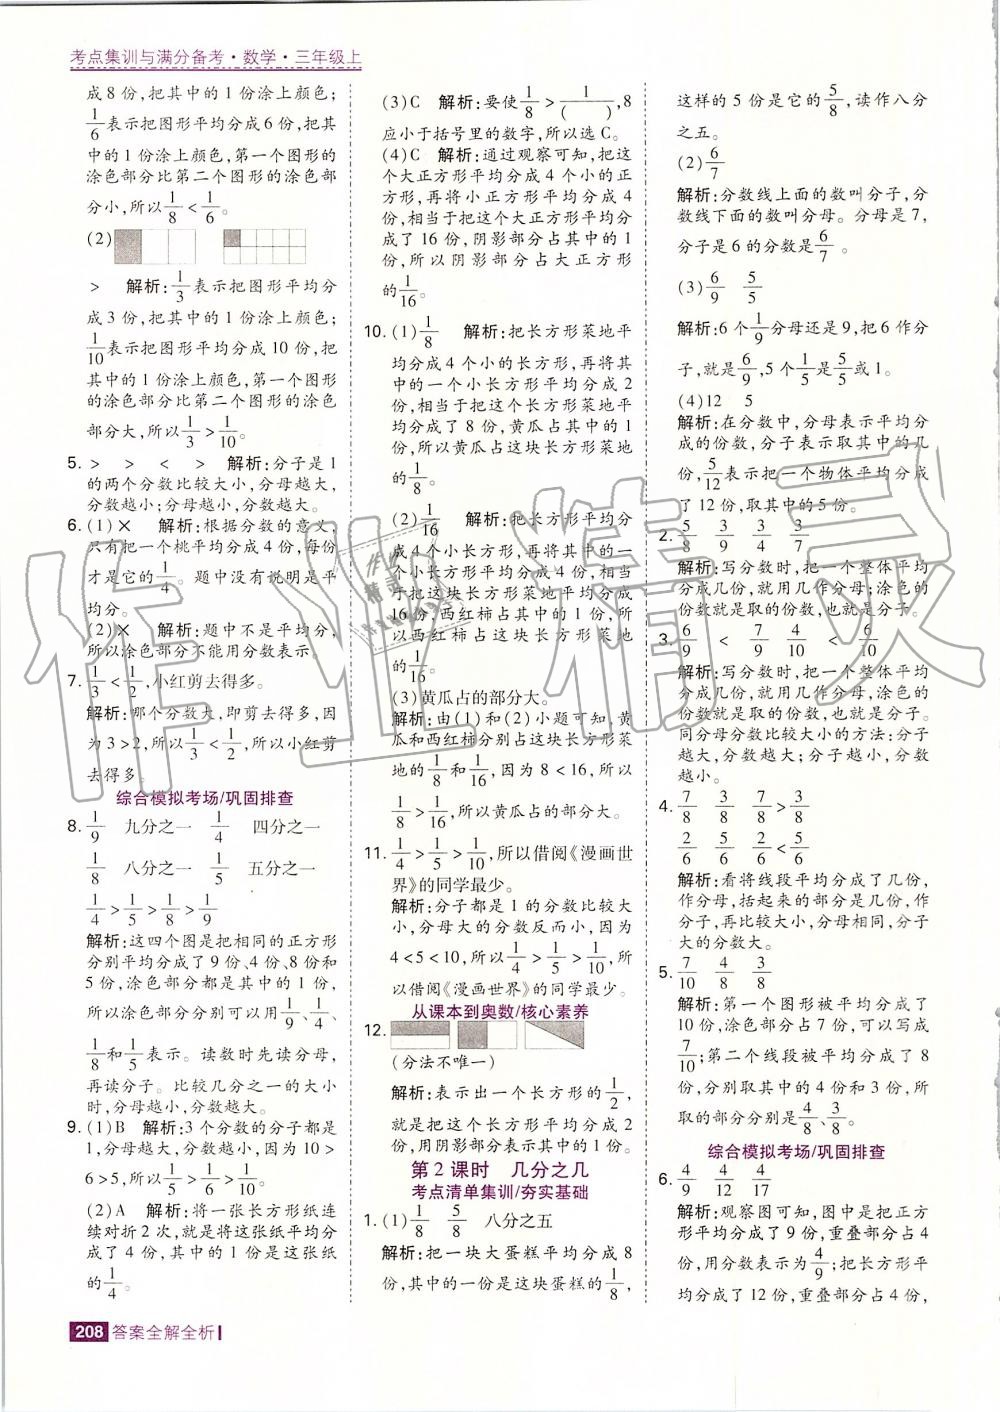 考点集训与满分备考·数学·三年级上
成8份,把其中的1份涂上颜色;
1/6表示把图形平均分成6份,把其
中的1份涂上颜色,第一个图形的
涂色部分比第二个图形的涂色部
分小,所以1/8<1/6。
(2)
> 解析:1/3表示把图形平均分
成3份,把其中的1份涂上颜色;
1/10表示把图形平均分成10份,把
其中的1份涂上颜色,第一个图形
的涂色部分比第二个图形的涂色
部分大,所以1/3>1/10。
5. > > < > 解析:分子是1
的两个分数比较大小,分母越大,
分数越小;分母越小,分数越大。
6. (1)× 解析:根据分数的意义,
只有把一个桃平均分成4份,每份
才是它的1/4。题中没有说明是平
均分。
(2)× 解析:题中不是平均分,
所以涂色部分不能用分数表示。
7. 1/3<1/2,小红剪去得多。
解析:哪个分数大,即剪去得多,因
为3>2,所以1/3<1/2,所以小红剪
去得多。
综合模拟考场/巩固排查
8. 1/9 九分之一 1/4 四分之一
1/8 八分之一 1/5 五分之一
1/4>1/5>1/8>1/9
解析:这四个图是把相同的正方形
分别平均分成了9份、4份、8份和
5份,涂色部分都是其中的1份,
所以涂色部分分别可以用1/9、1/4、
1/8和1/5表示。读数时先读分母,
再读分子。比较几分之一的大小
时,分母越小,分数越大。
9. (1)B 解析:3个分数的分子都是
1,分母越大,分数越小,因为10>
6>5,所以1/5>1/6>1/10。
(2)A 解析:将一张长方形纸连
续对折2次,就是将这张纸平均分
成了4份,其中的1份是这张纸
的1/4。
(3)C 解析:要使1/8>1/( ),8
应小于括号里的数字,所以选C。
(4)C 解析:通过观察可知,把这
个大正方形平均分成4个小的正
方形,再将小正方形平均分成4
份,相当于把这个大正方形平均分
成了16份,阴影部分占其中的1
份,所以阴影部分占大正方形
的1/16。
10. (1)1/8 解析:把长方形菜地平
均分成4个小的长方形,再将其
中的一个小长方形平均分成2
份,相当于把这块长方形菜地平
均分成了8份,黄瓜占其中的1
份,所以黄瓜占这块长方形菜地
的1/8。
(2)1/16 解析:把长方形平均分
成4个小长方形,再将其中的一
个小长方形平均分成4份,相当
于把这块长方形菜地平均分成
16份,西红柿占其中的1份,所
以西红柿占这块长方形菜地
的1/16。
(3)黄瓜占的部分大。
解析:由(1)和(2)小题可知,黄
瓜和西红柿分别占这块长方形菜
地的1/8和1/16,因为8<16,所以
1/8>1/16,所以黄瓜占的部分大。
11. 1/4>1/5>1/10,所以借阅《漫画世
界》的同学最少。
解析:分子都是1的分数比较大
小,分母大的分数反而小,因为
4<5<10,所以1/4>1/5>1/10,所
以借阅《漫画世界》的同学最少。
从课本到奥数/核心素养
12.
(分法不唯一)
解析:表示出一个长方形的1/2,
就是把这个长方形平均分成2
份,用阴影部分表示其中的1份。
第2课时 几分之几
考点清单集训/夯实基础
1. (1)1/8 5/8 八分之五
解析:把一块大蛋糕平均分成8
份,其中的一份是这块蛋糕的1/8,
这样的5份是它的5/8,读作八分
之五。
(2)6/7
解析:分数线上面的数叫分子,分
数线下面的数叫分母。分母是7,
分子是6的分数是6/7。
(3)6/9 5/5
解析:6个1/9分母还是9,把6作分
子,就是6/9,5个1/5是5/5或1。
(4)12 5
解析:在分数中,分母表示平均分
成的份数,分子表示取其中的几
份,5/12表示把一个物体平均分成
了12份,取其中的5份。
2. 5/8 3/9 3/4 3/7
解析:写分数时,把一个整体平均
分成几份,就用几作分母;涂色的
份数就是取的份数,也就是分子。
3. 6/9 < 7/9 4/10 < 6/10
解析:写分数时,把一个整体平均
分成几份,就用几作分母,涂色的
份数就是取的份数,也就是分子。
同分母分数比较大小的方法:分子
越大,分数越大;分子越小,分数
越小。
4. 7/8 3/8 7/8>3/8
2/6 5/6 2/6<5/6
解析:看将线段平均分成了几份,
作分母,括起来的部分是几份,
作分子,再比较大小,分母相同,分子
大的分数大。
5. 7/10 4/8 3/8
解析:第一个图形被平均分成了
10份,涂色部分占7份,可以写成
7/10;第二个线段被平均分成了8
份,分别取其中的4份和3份,所
取的部分分别是4/8、3/8。
综合模拟考场/巩固排查
6. 4/9 4/12 4/17
解析:观察图可知,图中是把正方
形平均分成了9份,重叠部分占4
份,用分数表示为4/9;把长方形平
均分成了12份,重叠部分占4份,
208 答案全解全析
作业精灵